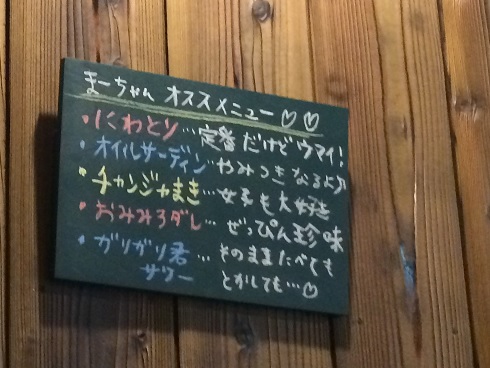 まーちゃん オススメニュー♡♡
・にわとり…定番だけどウマイ!
・オイルサーディン…やみつきなるよ♪
・チャンジャまき…女子も大好き
・おみみろダレ…ぜっぴん珍味
・ガリガリ君 …そのままたべても
サワー とかしても…♡